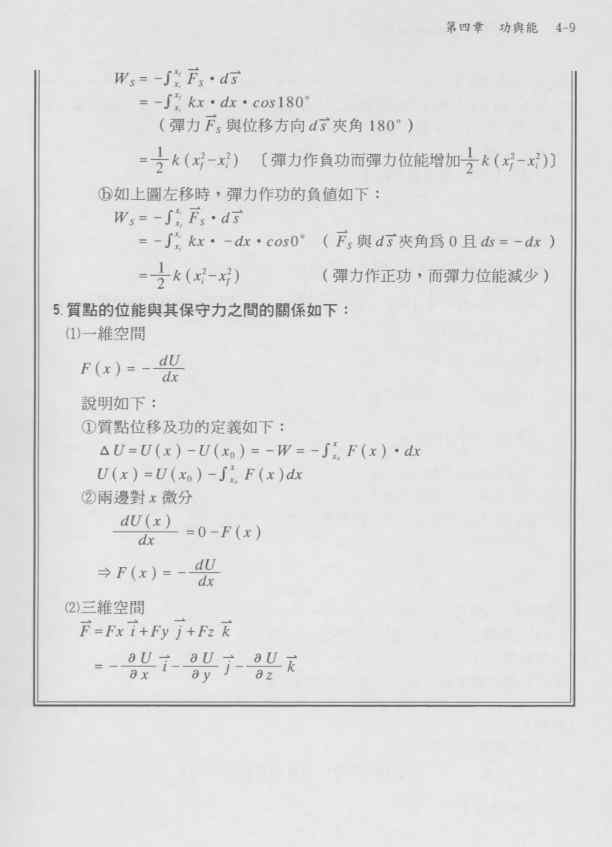 第四章 功與能 4-9
W_S = -∫_{x_i}^{x_f} F⃗_S · ds⃗
= -∫_{x_i}^{x_f} kx · dx · cos180°
(彈力 F⃗_S 與位移方向 ds⃗ 夾角 180°)
= 1/2 k (x_f²-x_i²) 〔彈力作負功而彈力位能增加 1/2 k (x_f²-x_i²)〕
ⓑ如上圖左移時，彈力作功的負值如下：
W_S = -∫ F⃗_S · ds⃗
= -∫ kx · -dx · cos0° (F⃗_S 與 ds⃗ 夾角為 0 且 ds = -dx)
= -1/2 k (x_i²-x_f²) (彈力作正功，而彈力位能減少)
5. 質點的位能與其保守力之間的關係如下：
⑴一維空間
F(x) = -dU/dx
說明如下：
①質點位移及功的定義如下：
△U=U(x)-U(x₀) = -W = -∫_{x₀}^{x} F(x)·dx
U(x)=U(x₀)-∫_{x₀}^{x} F(x)dx
②兩邊對 x 微分
dU(x)/dx =0-F(x)
⇒ F(x) = -dU/dx
⑵三維空間
F⃗=Fx i⃗+Fy j⃗+Fz k⃗
= -∂U/∂x i⃗-∂U/∂y j⃗-∂U/∂z k⃗